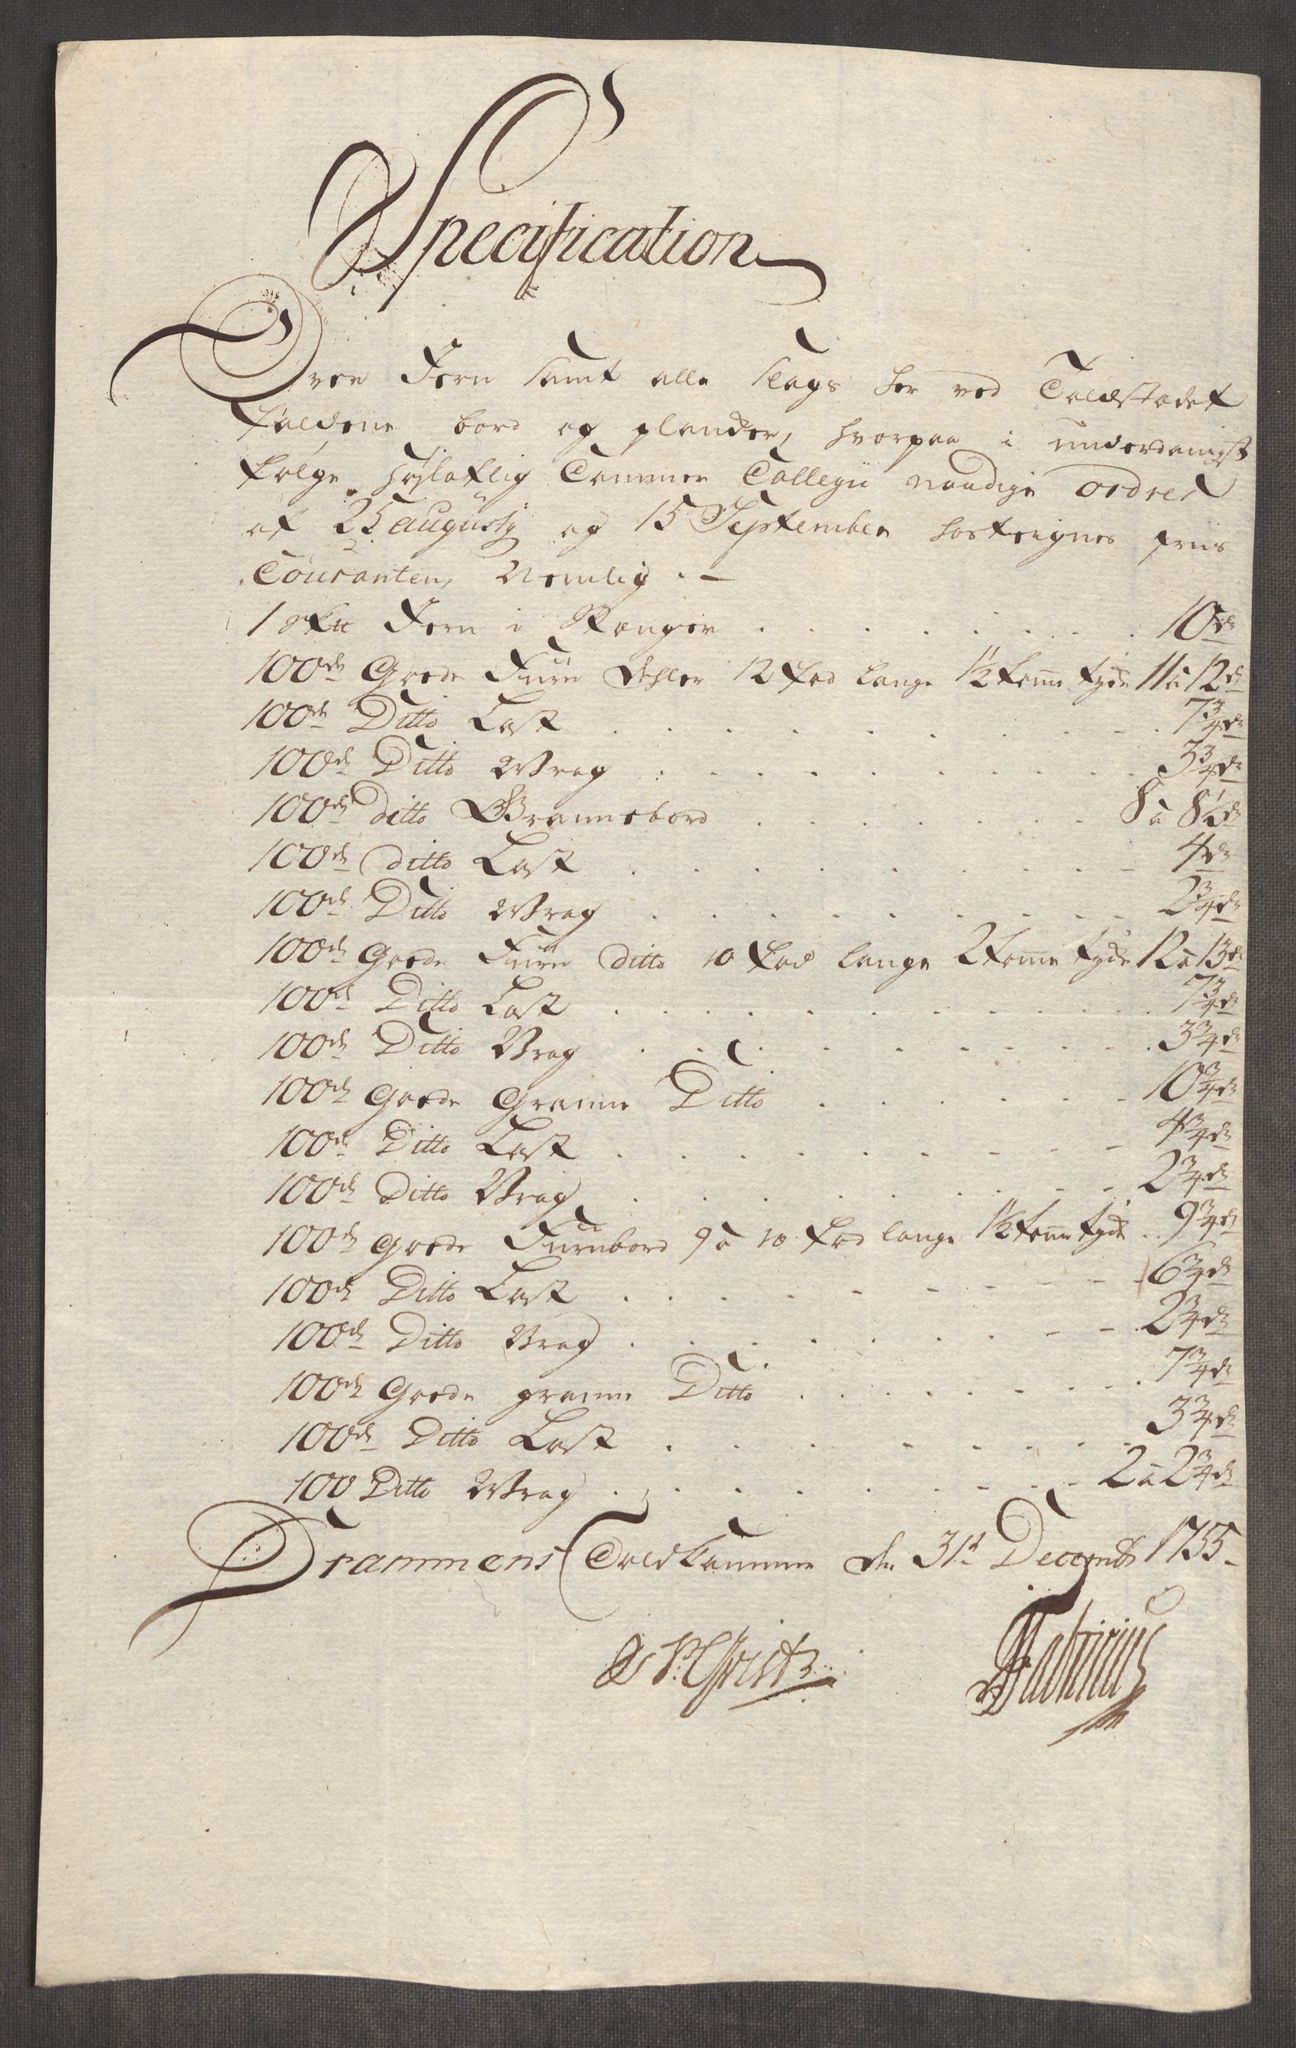 Specification
Over Jern samt alle slags her ved Toldstædet
faldene bord og plancker, hvorpaa i underdanigst
følge Høyloflig Cammer Collegii naadige ordres
af 25 augustj og 15 September hostegnes priis
Couranten, Nemlig. —
1 sk℔ Jern i Stanger . . . . . . . . 10 rdr
100de Goede Furu Dehler 12 fod lange 1½ tomme tyde 11 a 12 rdr
100de Ditto Last . . . . . . . . 7¾ rdr
100de Ditto Wrag . . . . . . . . 3¾ rdr
100de ditto Grannebord . . . . . . 8 a 8½ rdr
100de ditto Last . . . . . . . . 4 rdr
100de Ditto Wrag . . . . . . . . 2¾ rdr
100de Goede Furu ditto 10 fod lange 2 tomme tyde 12 a 13 rdr
100de Ditto Last . . . . . . . . 7¾ rdr
100de Ditto Vrag . . . . . . . . 3¾ rdr
100de Goede Granne Ditto . . . . . . 10¾ rdr
100de Ditto Last . . . . . . . . 4¾ rdr
100de Ditto Vrag . . . . . . . . 2¾ rdr
100de Goede Furubord 9 a 10 fod lange 1½ tomme tyde . . 9¾ rdr
100de Ditto Last . . . . . . . . 6¾ rdr
100de Ditto Vrag . . . . . . . . 2¾ rdr
100de Goede granne Ditto . . . . . . 7¾ rdr
100de Ditto Last . . . . . . . . 3¾ rdr
100 Ditto Wrag . . . . . . . . 2 a 2¾ rdr
Drammens Toldkammer dn 31st Decembr 1755 –